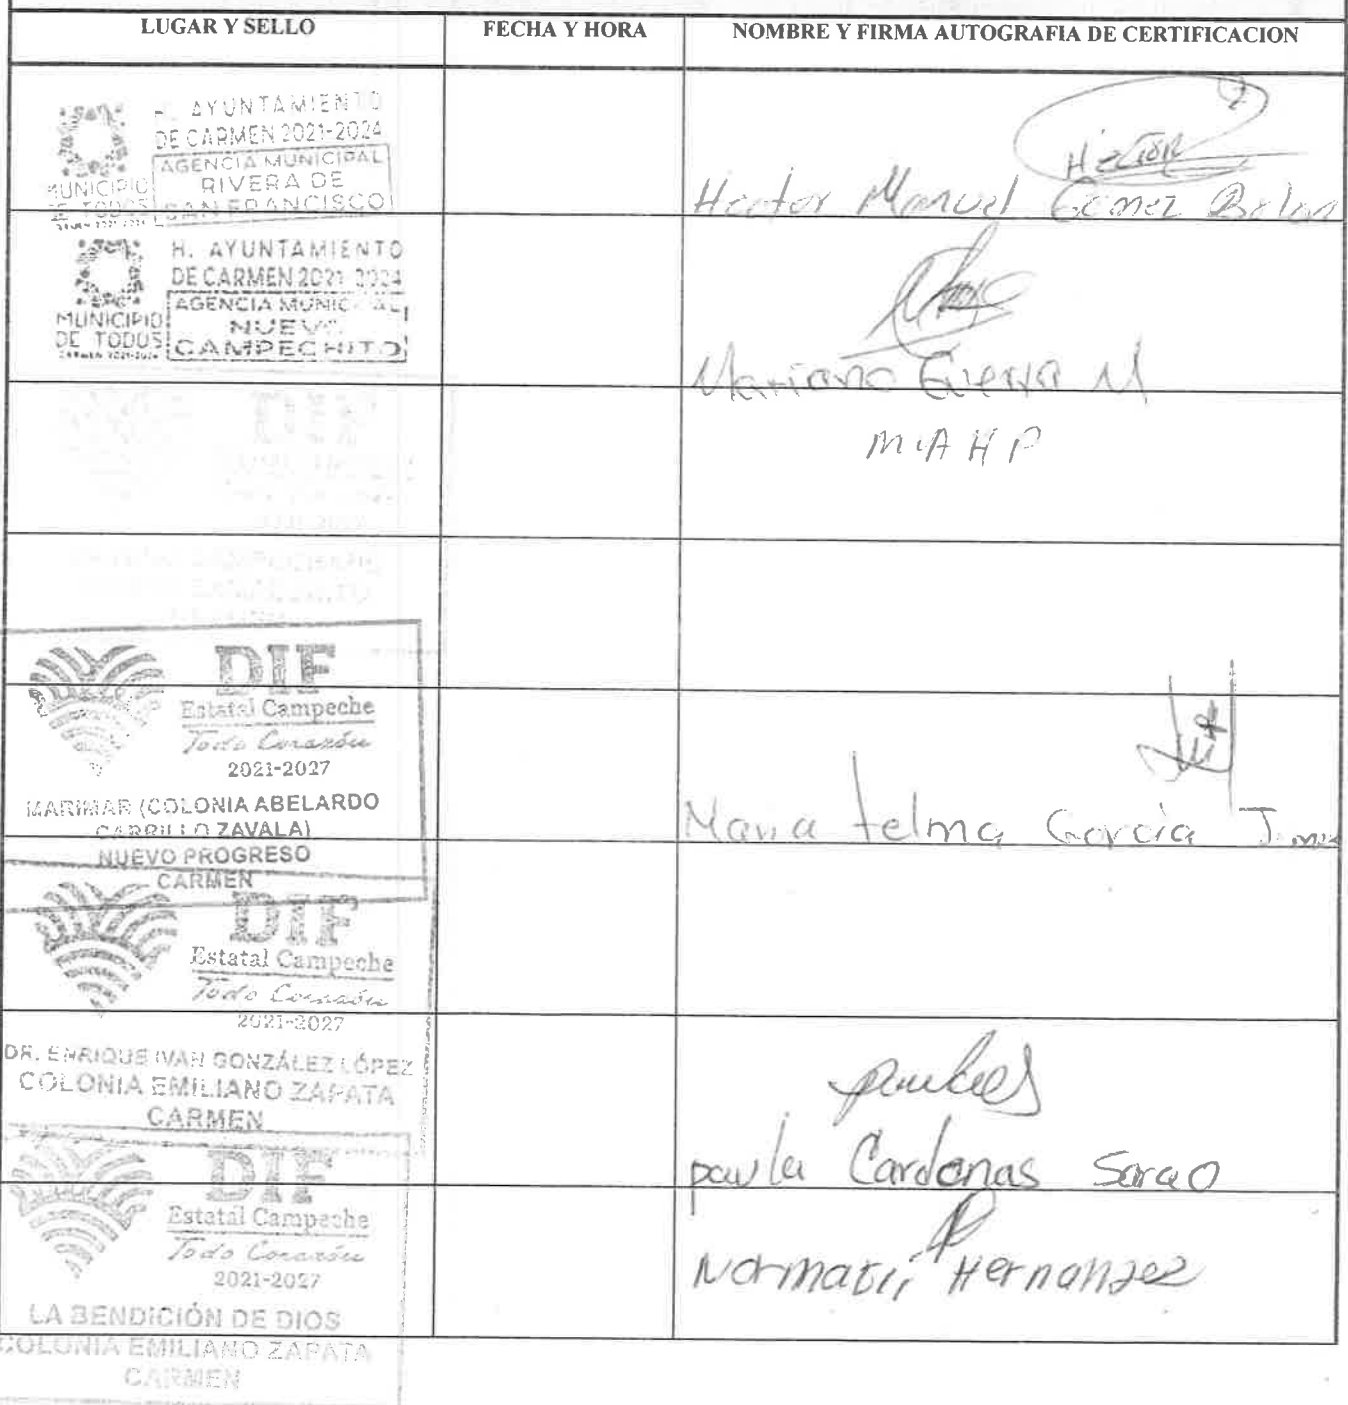 LUGAR Y SELLO
FECHA Y HORA
NOMBRE Y FIRMA AUTOGRAFIA DE CERTIFICACION
H. AYUNTAMIENTO
DE CARMEN 2021-2024
AGENCIA MUNICIPAL
RIVERA DE
SAN FRANCISCO
MUNICIPIO
DE TODOS
Hector
Hector Manuel Gomez
H. AYUNTAMIENTO
DE CARMEN 2021-2024
AGENCIA MUNICIPAL
NUEVO
CAMPECHITO
MUNICIPIO
DE TODOS
CARMEN 2021-2024
Mariano Guerra M
M.A H P
DIF
DIF
Estatal Campeche
Todo Corazón
2021-2027
MARIMAR (COLONIA ABELARDO
CARRILLO ZAVALA)
NUEVO PROGRESO
CARMEN
Maria telma Garcia
DIF
Estatal Campeche
Todo Corazón
2021-2027
DR. ENRIQUE IVAN GONZÁLEZ LÓPEZ
COLONIA EMILIANO ZAPATA
CARMEN
paula Cardenas
DIF
Estatal Campeche
Todo Corazón
2021-2027
LA BENDICIÓN DE DIOS
COLONIA EMILIANO ZAPATA
CARMEN